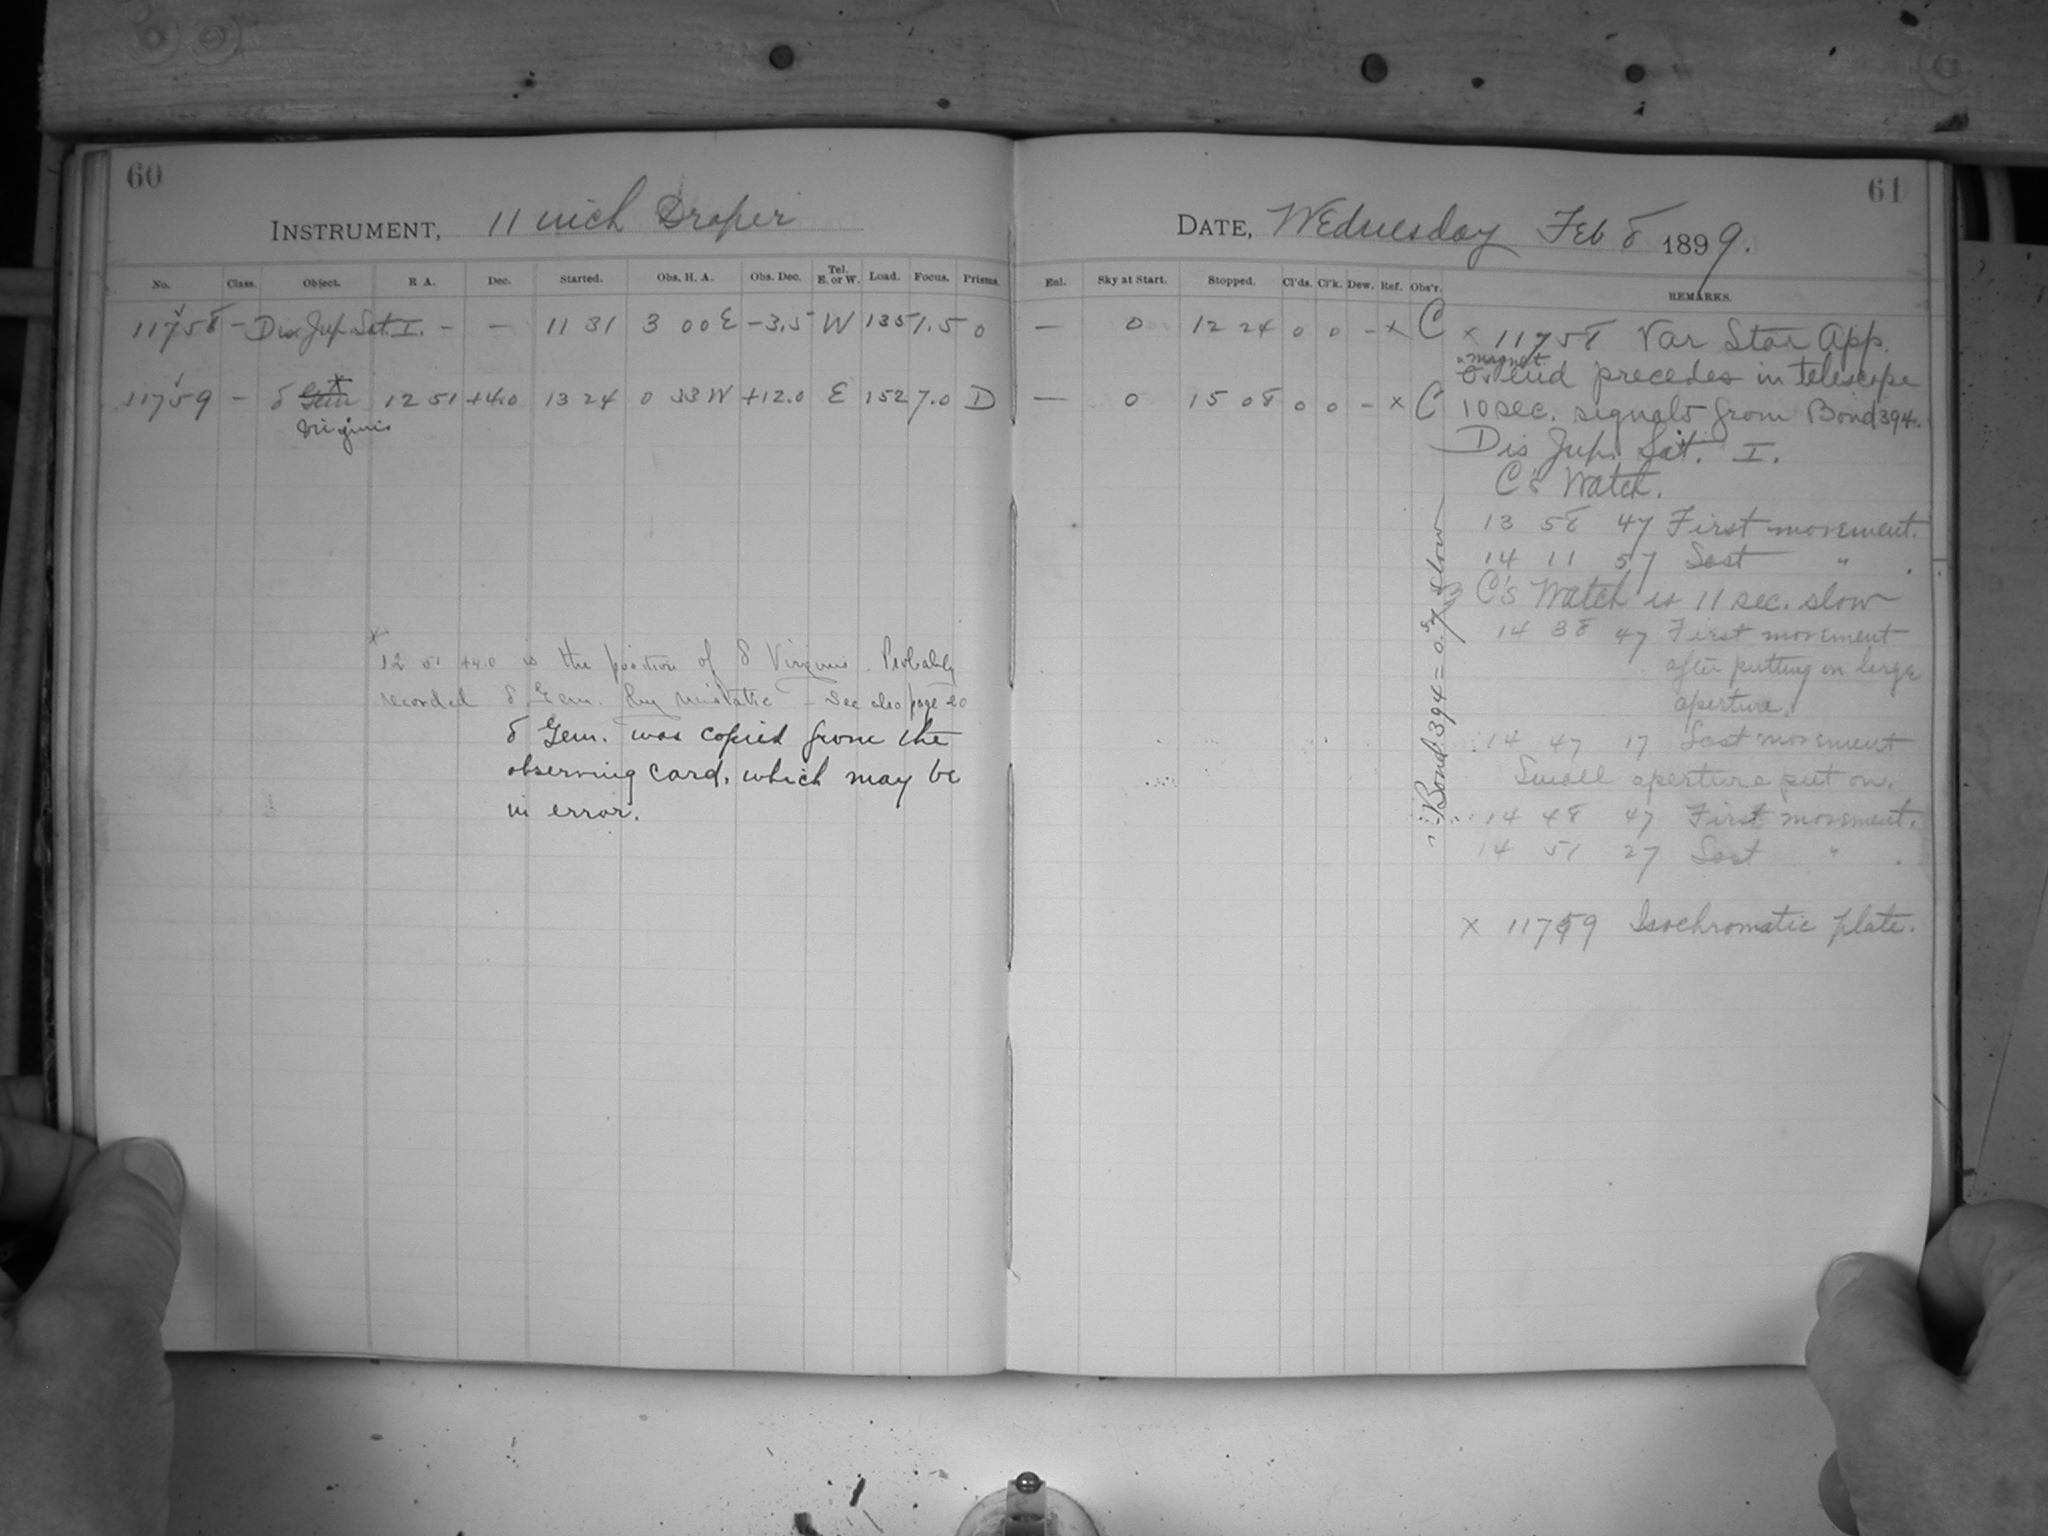 60
INSTRUMENT, 11 inch Draper
No. Class. Object. R A. Dec. Started. Obs. H. A. Obs. Dec. Tel. E. or W. Load. Focus. Prisms.
11758 - Dis. Jup. Sat. I. - - 11 31 3 00 E -3.5 W 135 1.5 0
11759 - δ Gem* 12 51 +4.0 13 24 0 33 W +12.0 E 152 7.0 D
Virginis
* 12 51 +4.0 is the position of δ Virginis. Probably
recorded δ Gem. by mistake - See also page 20
δ Gem. was copied from the
observing card, which may be
in error.
61
DATE, Wednesday Feb 8 1899.
Enl. Sky at Start. Stopped. Cl'ds. Cl'k. Dew. Ref. Obs'r. REMARKS.
— 0 12 24 0 0 - x C
— 0 15 08 0 0 - x C
x 11758 Var Star App.
"magnet"
end precedes in telescope
10 sec. signals from Bond 394.
Dis Jup. Sat. I.
C's Watch.
13 58 47 First movement.
14 11 57 Last " .
C's Watch is 11 sec. slow
14 38 47 First movement
after putting on large
aperture.
14 47 17 Last movement
Small aperture put on.
14 48 47 First movement.
14 51 27 Last " .
x 11759 Isochromatic plate.
∴ Bond 394 = 0.s7 slow